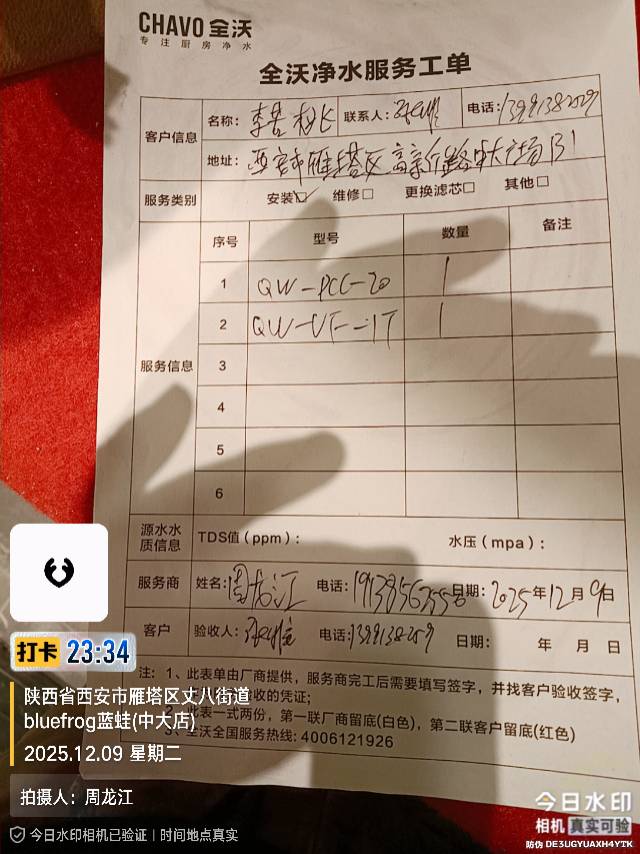 CHAVO 全沃
专注厨房净水
全沃净水服务工单
客户信息
名称:
联系人:
电话:
地址: 西安市雁塔区高新
B1
服务类别 安装☑ 维修□ 更换滤芯□ 其他□
服务信息
序号 型号 数量 备注
1 QW-PCC-20 1
2 QW-UF-1T 1
3
4
5
6
源水水质信息 TDS值(ppm): 水压(mpa):
服务商 姓名:周龙江 电话: 日期:2025年12月9日
客户 验收人: 电话: 日期: 年 月 日
注: 1、此表单由厂商提供,服务商完工后需要填写签字,并找客户验收签字
验收的凭证;
2、此表一式两份,第一联厂商留底(白色),第二联客户留底(红色)
3、全沃全国服务热线: 4006121926
打卡 23:34
陕西省西安市雁塔区丈八街道
bluefrog蓝蛙(中大店)
2025.12.09 星期二
拍摄人: 周龙江
今日水印相机已验证 | 时间地点真实
今日水印
相机 真实可验
防伪 DE3UGYUAXH4YTK